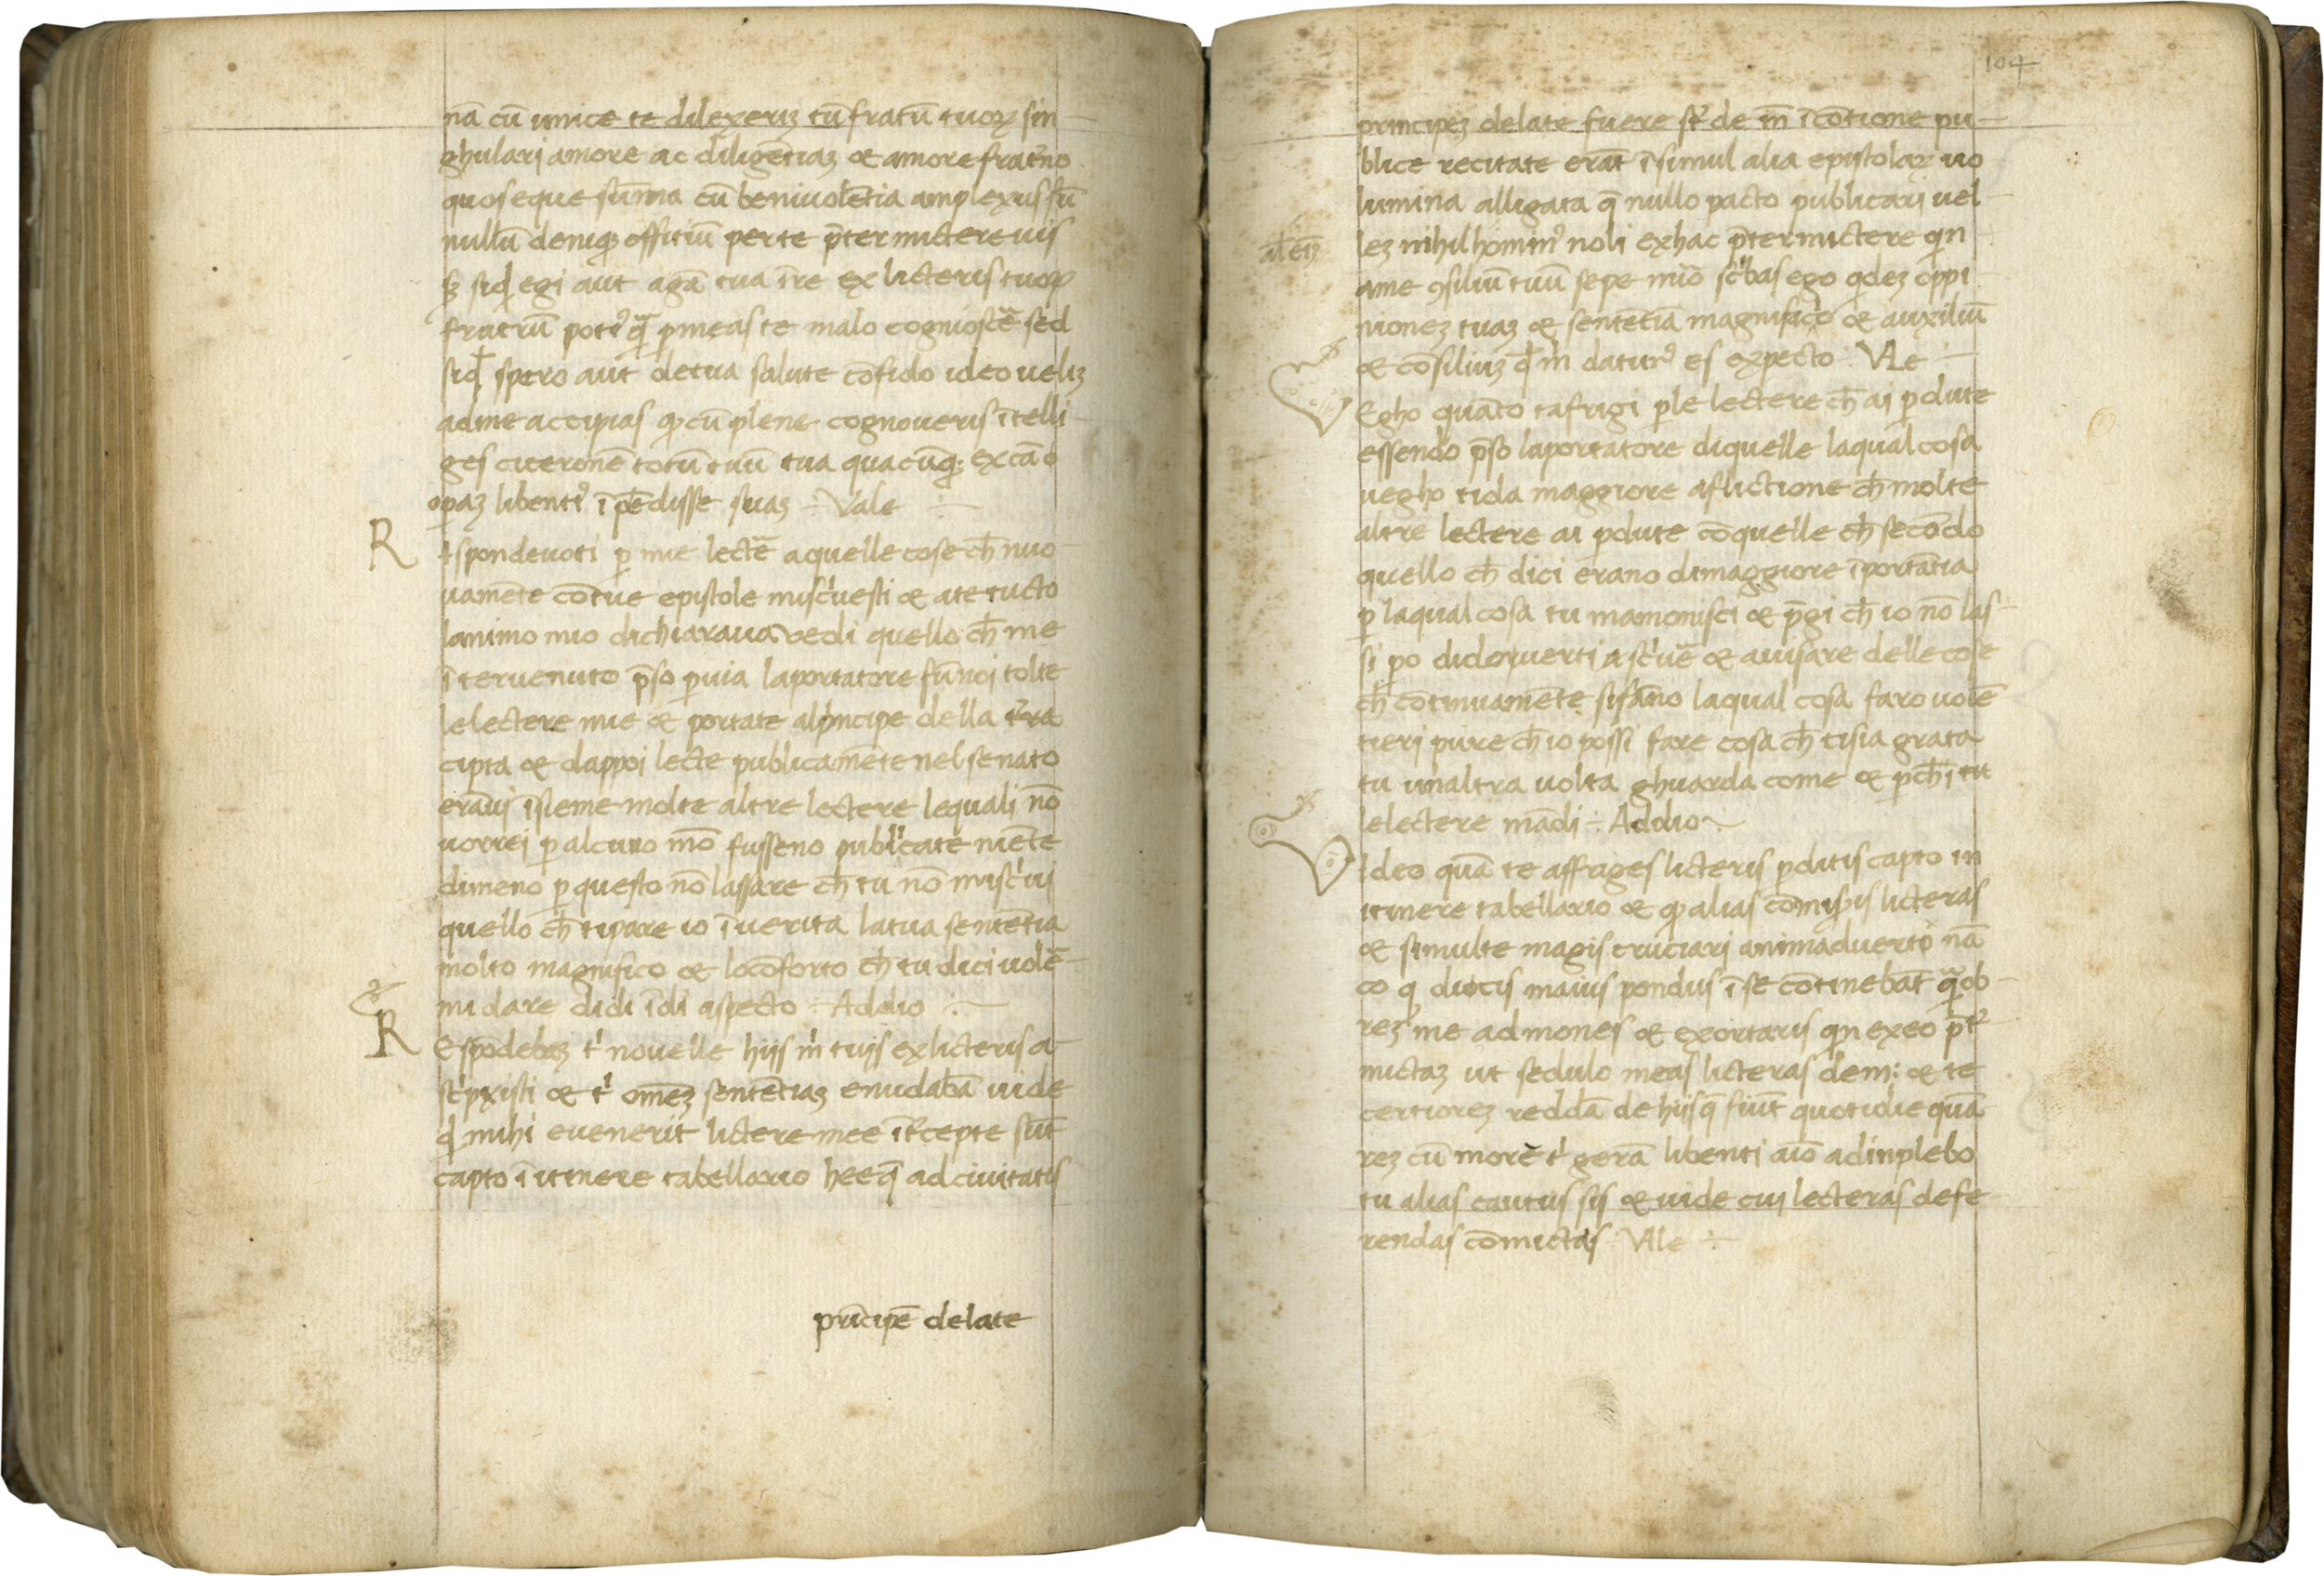 nā cū unice te dilexeriʒ tū fratū tuoꝝ sin
ghulari amore ac diligētiaʒ & amore frat̄no
quos eque sūma cū beniuolētia amplexus sū
nullū deniqꝫ offitiū per te p̄termictere uis
sꝫ siqđ egi aut agā tua īre ex licteris tuoꝝ
fratrū poti᾽ q̄ꝫ ꝑ meas te malo cognioscē sed
siqđ spero aut de tua salute cōfido ideo ueliʒ
ad me accipias qꝫ cū plene cognoueris ītelli
ges ciceronē totū tuū tua quacūqꝫ ex cā o
opaʒ libenti᾽ īpēdisse suaʒ Vale
R
spondeuoti ꝑ mie lectē a quelle cose ch̄ nuo
uamēte cō tue epistole misc'uesti & a te tucto
lanimo mio dichiaraua vedi quello ch̄ me
īteruenuto p̄so ꝑ uia laportatore fūnoi tolte
le lectere mie & portate alp̄ncipe della t'ra
cipta & dappoi lecte publicamēte nel senato
erāui īsieme molte altre lectere lequali nō
uorrei ꝑ alcuno mō fusseno publicate niēte
dimeno ꝑ questo nō lassare ch̄ tu nō mi sc'iui
quello ch̄ ti pare io ī uerita la tua sentētia
molto magnifico & lo cōforto ch̄ tu dici uolē
mi dare di di ī di aspecto Addio
R
Espōdebaʒ t' nouelle hijs m̄ tuis ex licteris a
sc'pxisti & t' omēʒ sentētiaʒ enudabā uide
qđ mihi euenerit lictere mee īt'cepte sūt
capto ī itinere tabellario heeq̄ ad ciuitatis
prīcipē delate
104
principeʒ delate fuere st' de m̄ ī cōtione pu
blice recitate erāt ī simul alia epistolaꝝ uo
lumina alligata q̄ nullo pacto publicari uel
leʒ nihil homin᾽ noli ex hac p̄termictere qn
a me ꝯsiliū tuū sepe mio sc'bas ego qdeʒ oppi
nioneʒ tuaʒ & sentētia magnifico & auxiliū
& cōsiliuʒ qđ m̄ datur᾽ es expecto Vale
Egho quāto tafrigi ꝑ le lectere ch̄ ai ꝑdute
essendo p̄so laportatore di quelle laqual cosa
uegho ti da maggiore aflictione ch̄ molte
altre lectere ai ꝑdute cō quelle ch̄ secōdo
quello ch̄ dici erano di maggiore īportātia
ꝑ laqual cosa tu mamonisci & p̄gi ch̄ io nō las
si po di doverti a sc'uē & auisare delle cose
ch̄ cōtinuamēte si fāno laqual cosa faro uolē
tieri pure ch̄ io possi fare cosa ch̄ ti sia grata
tu unaltra uolta ghuarda come & ꝑch̄ī tu
le lectere mādi Addio
Ideo quā te affriges licteris ꝑditis capto in
itinere tabellario & qꝫ alias cōmisis licteras
& simul te magis cruciari animaduerto nā
eo q dictis maius pondus ī se cōtinebāt q̄ ob
reʒ me admones & exortaris qn ex eo p̄t'
mictaʒ ut sedulo meas licteras dem: & te
certioreʒ reddā de hijsq̄ fiūt quotidie quā
reʒ cū morē t' gerā libenti aīo adinplebo
tu alias cautus sis & uide cui lecteras defe
rendas cōmictas Vale